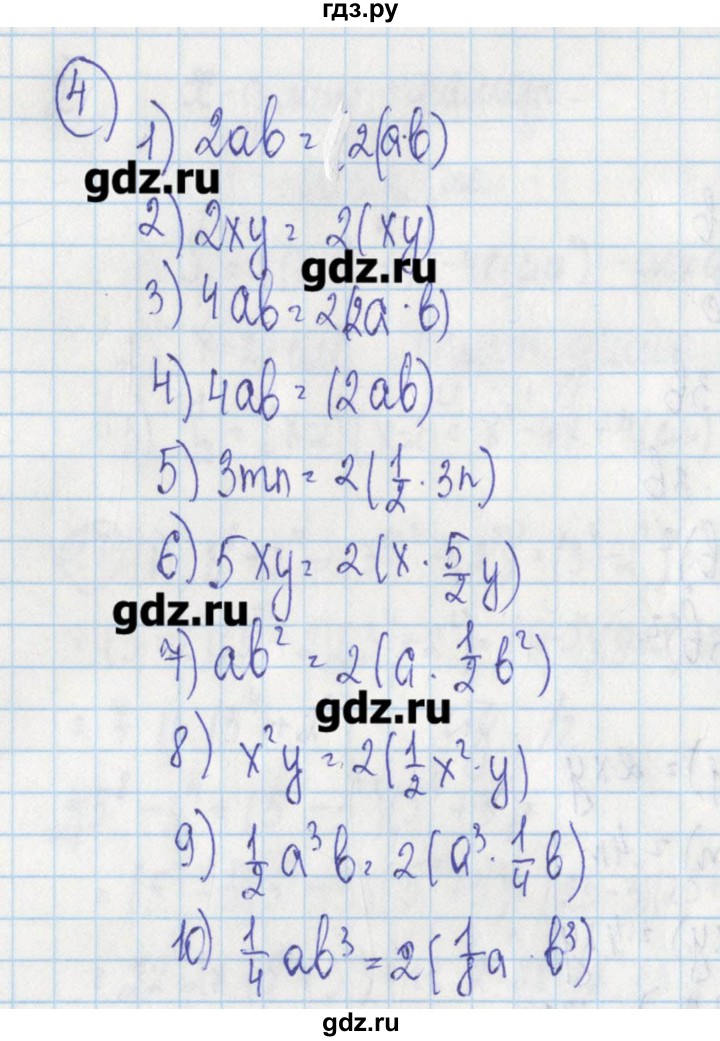 гдз.ру
4
1) 2ab = 2(a·b)
gdz.ru
2) 2xy = 2(xy)
gdz.ru
3) 4ab = 2(2a·b)
4) 4ab = (2ab)
5) 3mn = 2(1/2 · 3n)
6) 5xy = 2(x · 5/2 y)
gdz.ru
7) ab² = 2(a · 1/2 b²)
gdz.ru
8) x²y = 2(1/2 x² · y)
9) 1/2 a³b = 2(a³ · 1/4 b)
10) 1/4 ab³ = 2(1/8 a · b³)
gdz.ru